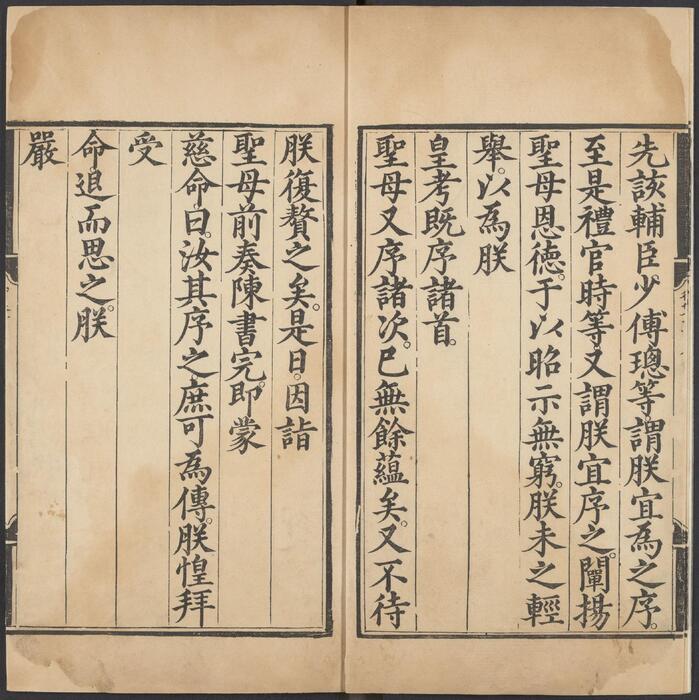 先該輔臣少傅璁等謂朕宜為之序。
至是禮官時等又謂朕宜序之。闡揚
聖母恩德。于以昭示無窮。朕未之輕
舉。以為朕
皇考既序諸首。
聖母又序諸次。已無餘蘊矣。又不待
朕復贅之矣。是日。因詣
聖母前奏陳書完。即蒙
慈命曰。汝其序之庶可為傳。朕惶拜
受
命退而思之。朕
嚴